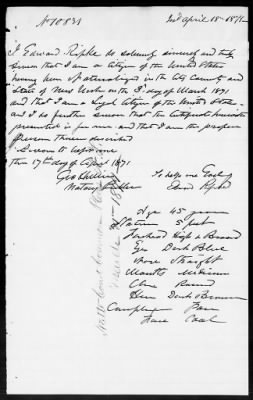 No 10831 Isd April 18 - 1871 -
I Edward Ripke do solemnly sincerely and truly
swear that I am a Citizen of the United States
having been Naturalized in the City County and
State of New York on the 3d day of March 1871
and that I am a Legal Citizen of the United States -
and I do further swear that the Certificate herewith
presented is for me and that I am the proper
person therein described
Sworn to before me
this 17th day of April 1871
So help me God
Notary Public Edward Ripke
Age 45 years
Stature 5 feet
Forehead High & Broad
Eyes Dark Blue
Nose Straight
Mouth Medium
Chin Round
Hair Dark Brown
Complexion Fair
Face Oval